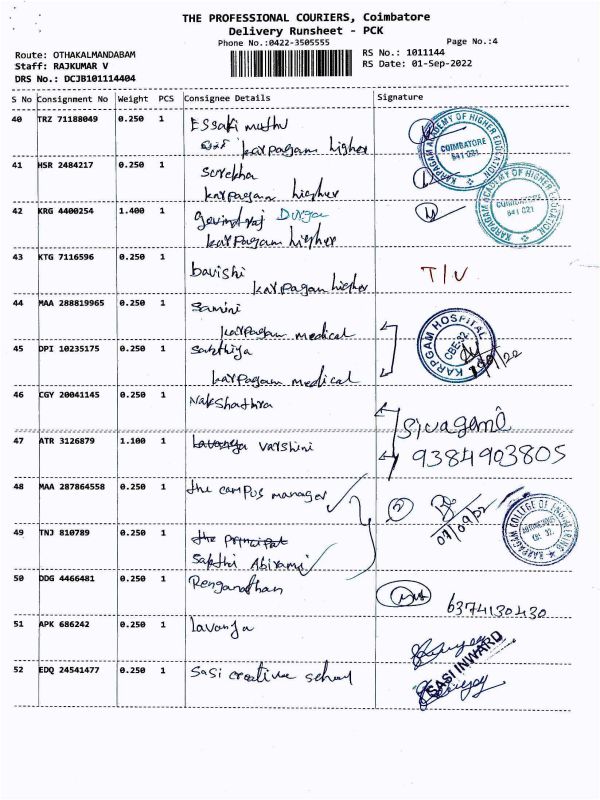 THE PROFESSIONAL COURIERS, Coimbatore
Delivery Runsheet - PCK
Phone No.:0422-3505555
Page No.:4
Route: OTHAKALMANDABAM
RS No.: 1011144
Staff: RAJKUMAR V
RS Date: 01-Sep-2022
DRS No.: DCJB101114404
S No Consignment No Weight PCS Consignee Details Signature
40 TRZ 71188049 0.250 1 Essaki muthu
karpagam higher
KARPAGAM ACADEMY OF HIGHER EDUCATION COIMBATORE 641 021
41 HSR 2484217 0.250 1 Surekha
karpagam higher
KARPAGAM ACADEMY OF HIGHER EDUCATION COIMBATORE 641 021
42 KRG 4400254 1.400 1 govindraj Durga
karpagam higher
43 KTG 7116596 0.250 1 bavishi T/V
karpagam higher
44 MAA 288819965 0.250 1 Samini
karpagam medical
KARPAGAM HOSPITAL CBE-32
45 DPI 10235175 0.250 1 Sakthiya
karpagam medical
46 CGY 20041145 0.250 1 Nakshathra
Sivagami
47 ATR 3126879 1.100 1 Lavanya Varshini 9384903805
48 MAA 287864558 0.250 1 the campus manager
KARPAGAM COLLEGE OF ENGINEERING AUTONOMOUS
49 TNJ 810789 0.250 1 the principal
Sakthi Abirami
50 DDG 4466481 0.250 1 Renganathan
6374130430
51 APK 686242 0.250 1 lavanya
SASI INWARD
52 EDQ 24541477 0.250 1 Sasi creative school